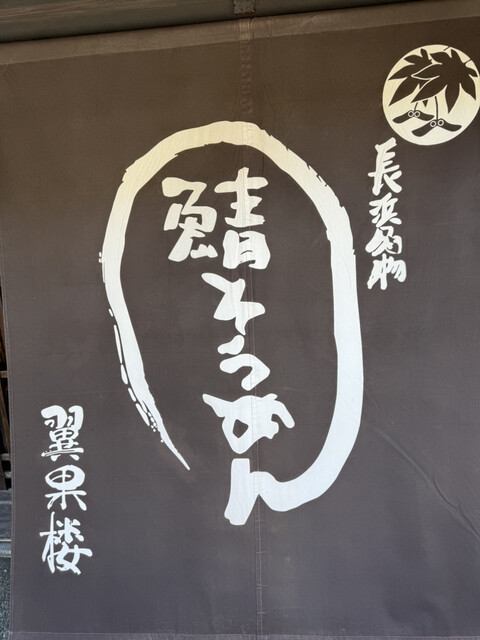 長浜名物
鯖そうめん
翼果楼